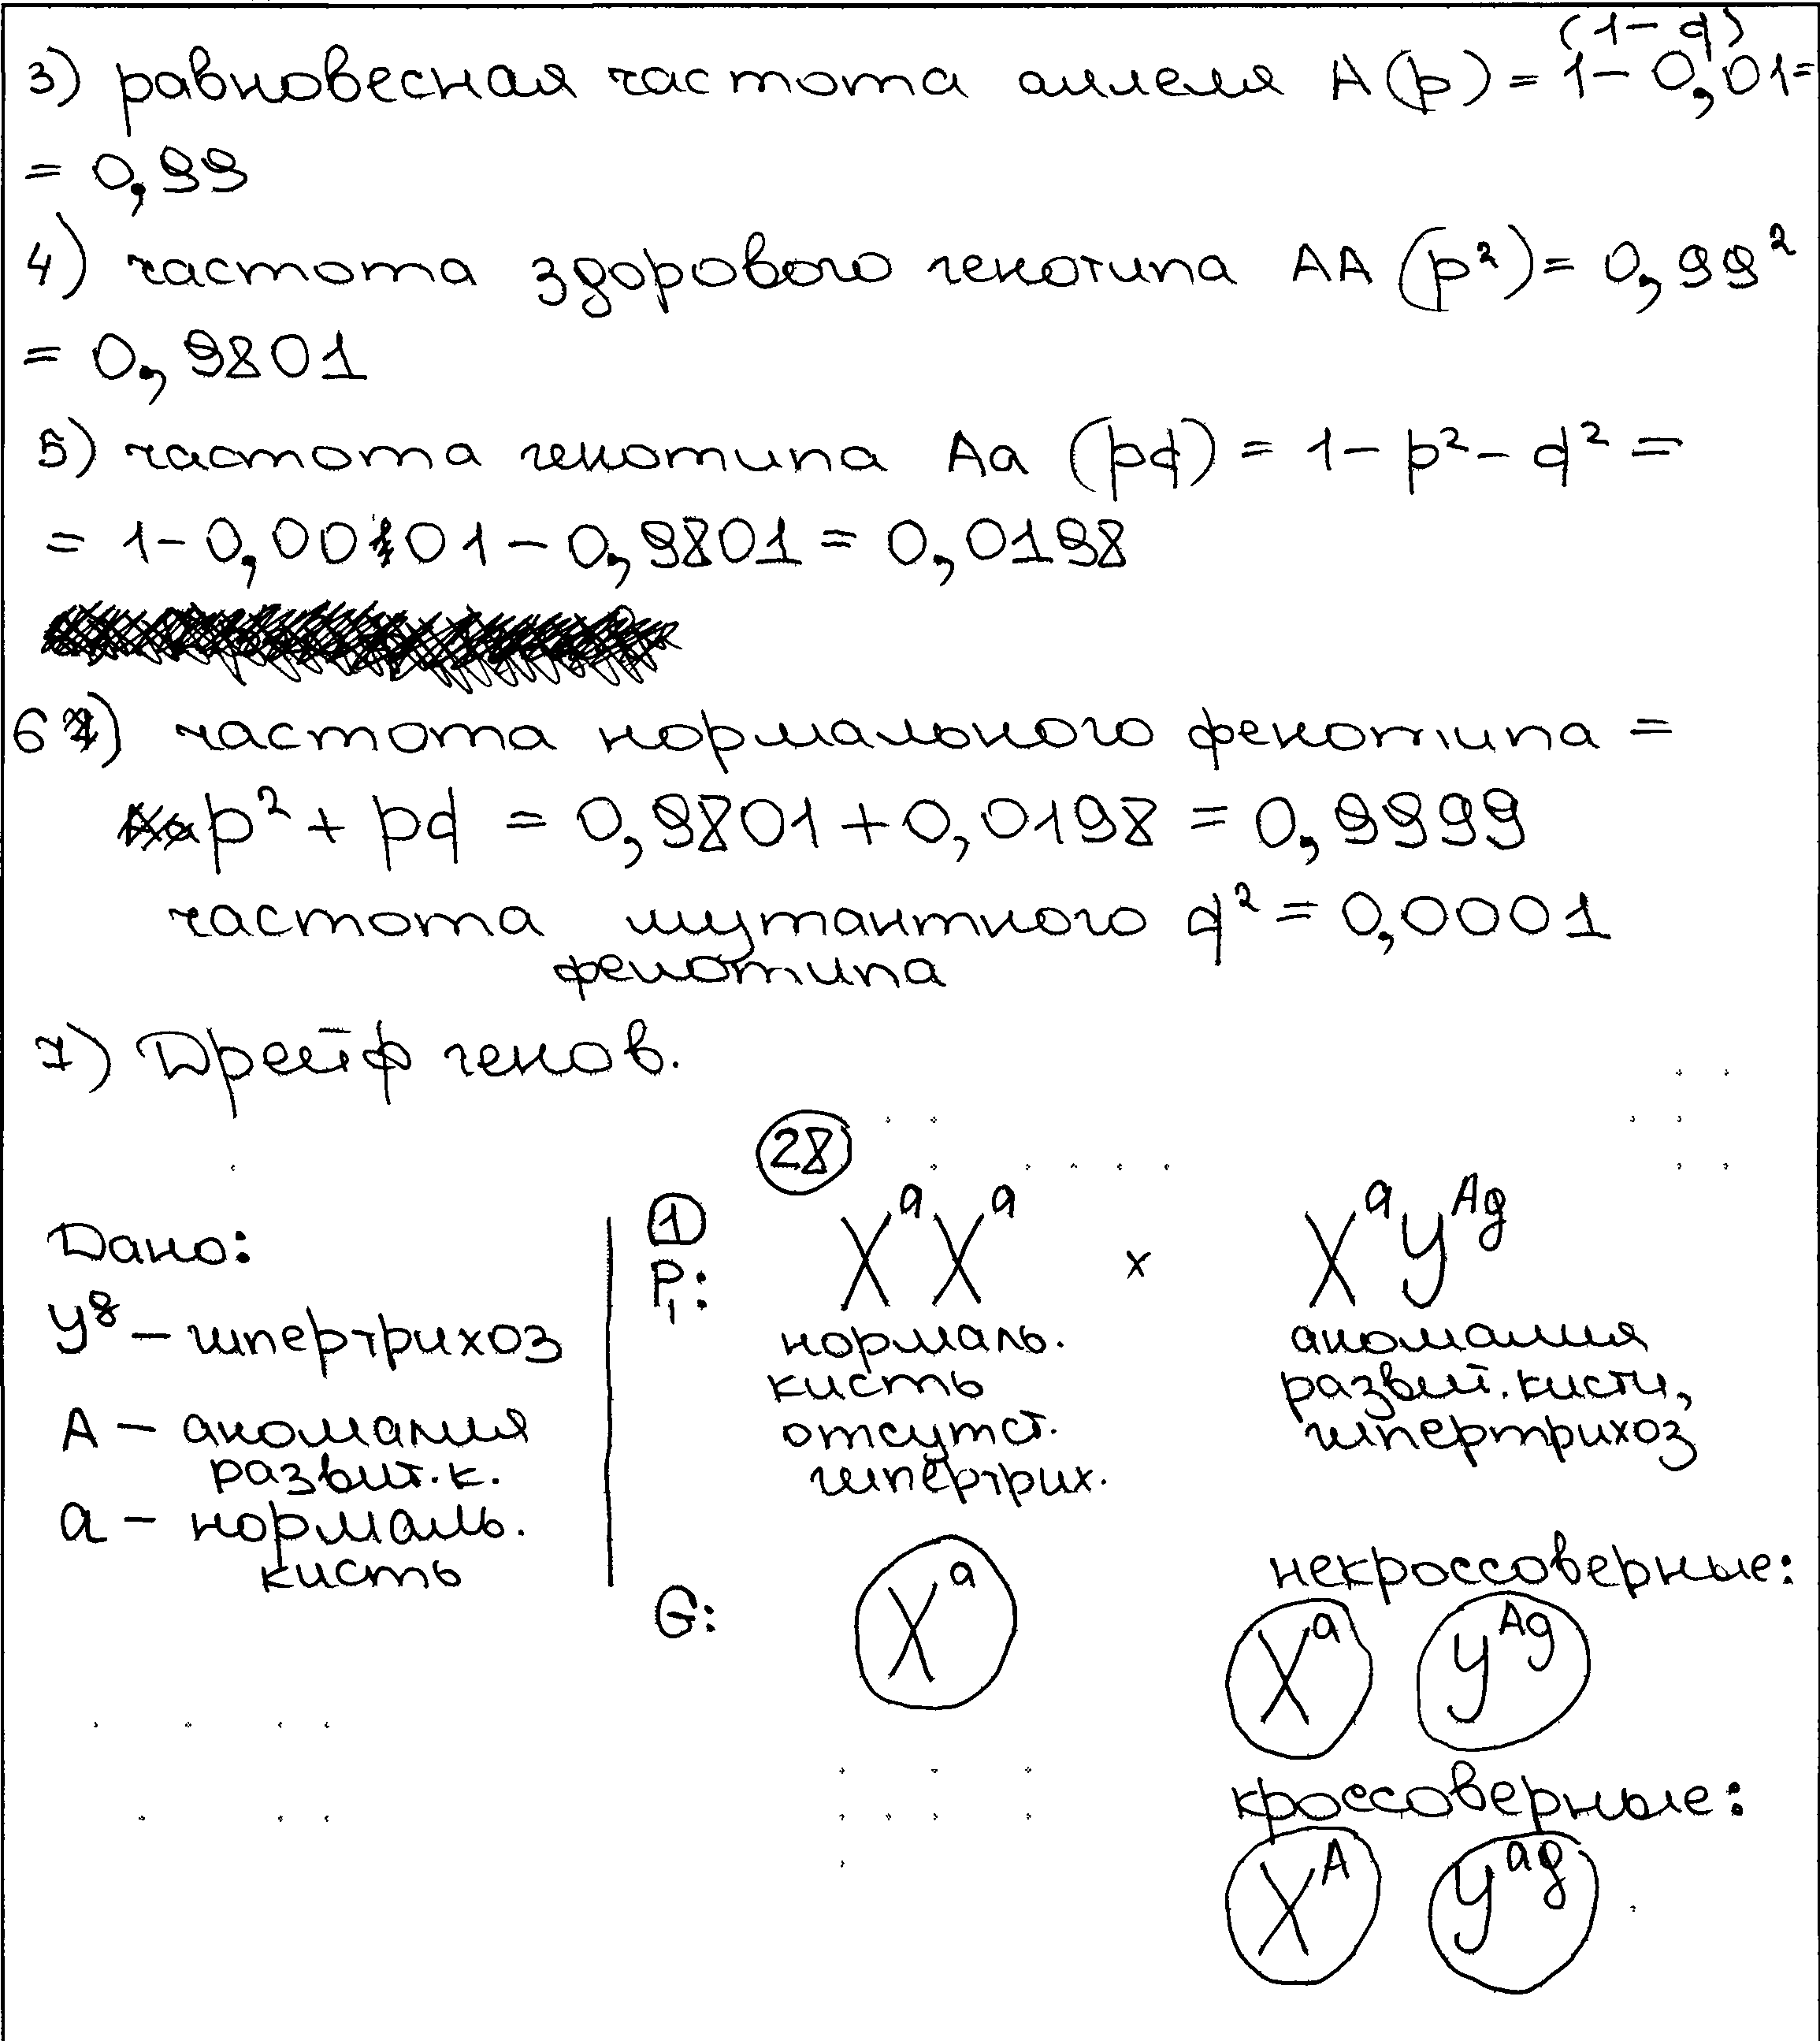 (1 – q)
3) равновесная частота аллеля A(p) = 1 – 0,01 =
= 0,99
4) частота здорового генотипа AA (p²) = 0,99²
= 0,9801
5) частота генотипа Aa (pq) = 1 – p² – q² =
= 1 – 0,0001 – 0,9801 = 0,0198
6) частота нормального фенотипа =
p² + pq = 0,9801 + 0,0198 = 0,9999
частота мутантного q² = 0,0001
фенотипа
7) Дрейф генов.
28
Дано:
Y^g – гипертрихоз
A – аномалия
развит. к.
a – нормаль.
кисть
1
P₁: X^a X^a × X^a Y^Ag
нормаль. аномалия
кисть развит. кисти,
отсутст. гипертрихоз
гипертрих.
некроссоверные:
G: X^a X^a Y^Ag
кроссоверные:
X^A Y^ag